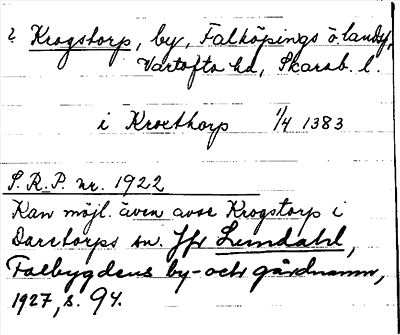 ? Krogstorp, by, Falköpings ö. landsf,
Vartofta hd, Skarab. l.
i Kroxthorp 1/4 1383
S.R.P. nr. 1922
Kan möjl. även avse Krogstorp i
Daretorps sn. Jfr Lundahl,
Falbygdens by- och gårdnamn,
1927, s. 94.